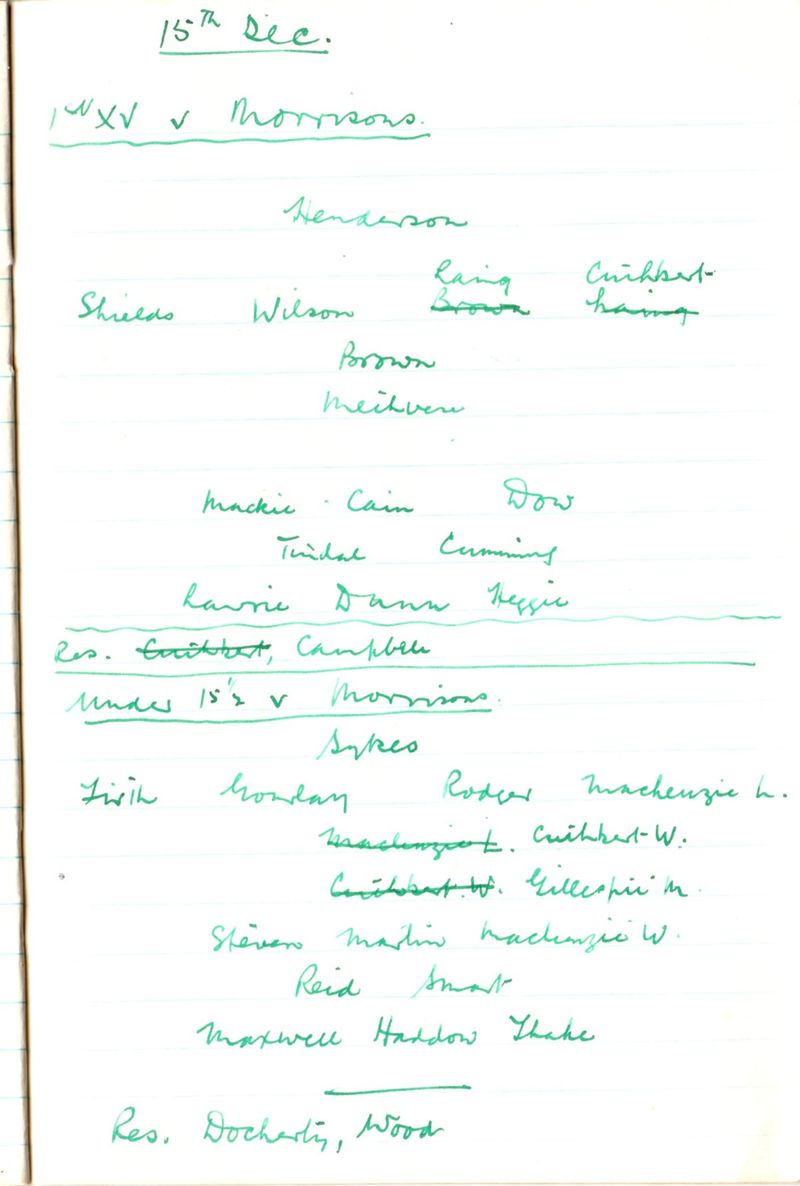 15th Dec.
1st XV v Morrisons.
Henderson
Laing Cuthbert
Shields Wilson Brown Laing
Brown
Methven
Mackie Cain Dow
Tindal Cumming
Lawrie Dunn Heggie
Res. Cuthbert, Campbell
Under 15's v Morrisons.
Sykes
Firth Gourlay Rodger Mackenzie L.
Mackenzie L. Cuthbert W.
Cuthbert W. Gillespie M.
Steven Martin Mackenzie W.
Reid Smart
Maxwell Haddow Thake
Res. Docherty, Wood